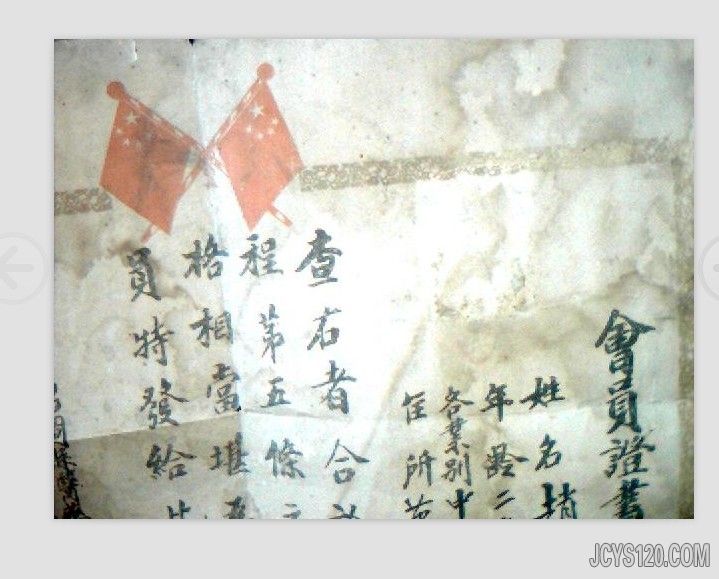 會員證書
姓名趙
年齡二
各業别中
住所
查右者合
程第五條
格相當堪
員特發給
JCYS120.COM